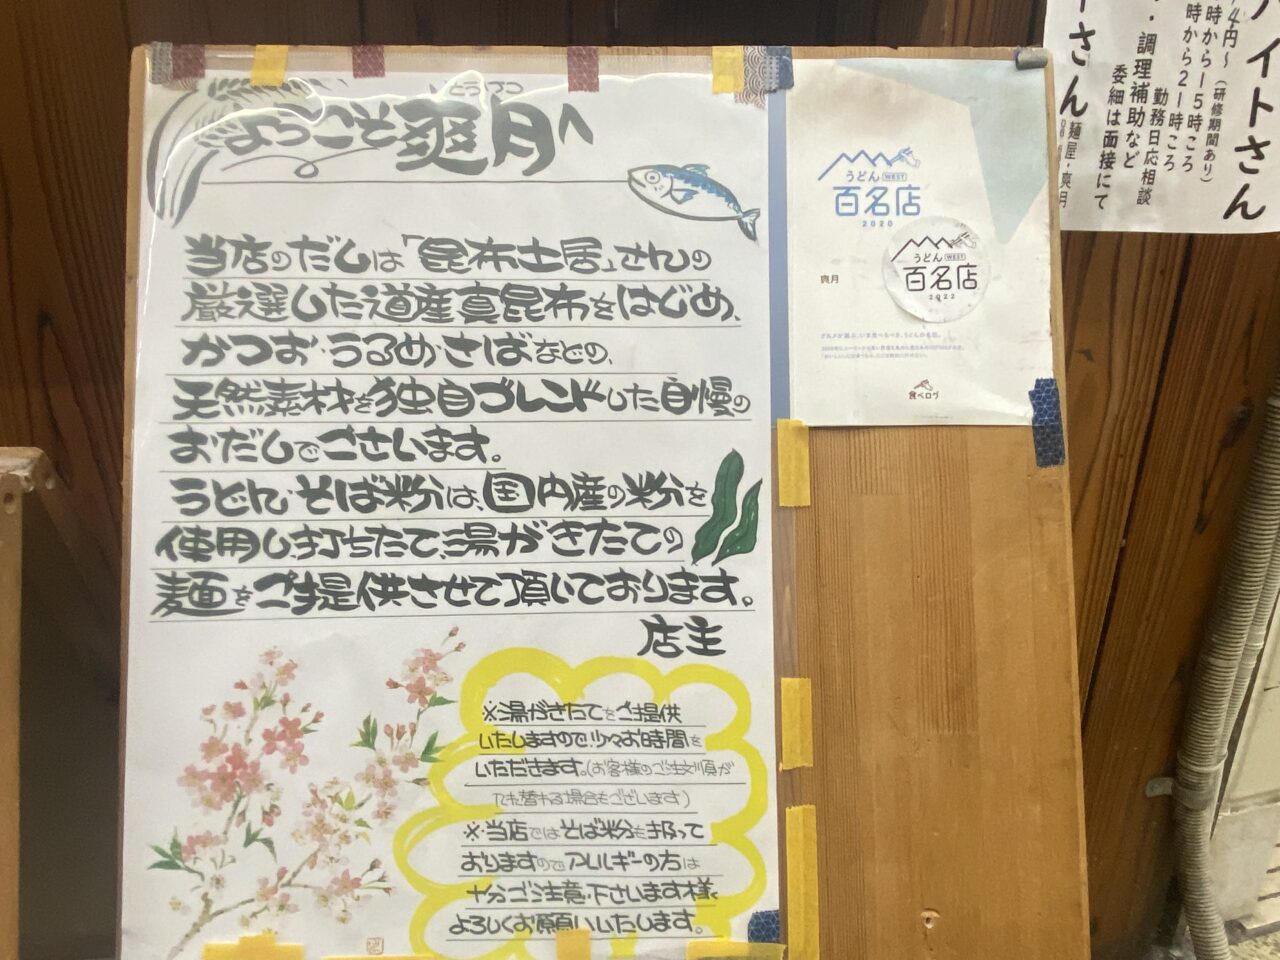 ようこそ爽月へ
当店のだしは「昆布土居」さんの
厳選した道産真昆布をはじめ、
かつお・うるめ・さばなどの、
天然素材を独自ブレンドした自慢の
おだしでございます。
うどん・そば粉は、国内産の粉を
使用し、打ちたて、湯がきたての
麺をご提供させて頂いております。
店主
※湯がきたてをご提供
いたしますので少々お時間を
いただきます。(お客様のご注文順が
入れ替わる場合もございます)
※当店ではそば粉も扱って
おりますのでアレルギーの方は
十分ご注意下さいます様
よろしくお願いいたします。
うどん WEST
百名店
2020
うどん WEST
百名店
2022
爽月
食べログ
イトさん
(研修期間あり)
時から15時ころ
時から21時ころ
勤務日応相談
・調理補助など
委細は面接にて
さん
麺屋・爽月